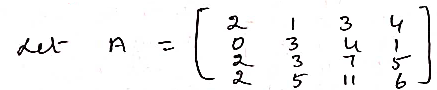 Let A = [ 2 1 3 4
0 3 4 1
2 3 7 5
2 5 11 6 ]